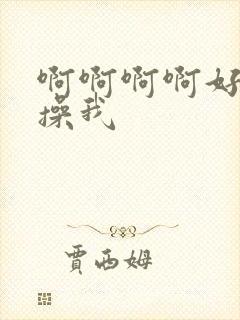 啊啊啊啊好
操我
贾西姆